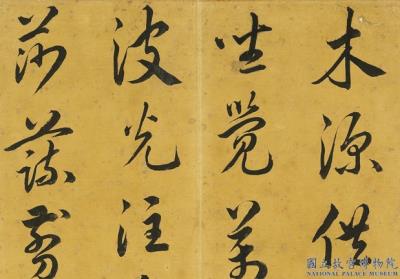 木源供
坐覺萬
波光注
莎蘿
國立故宮博物院
NATIONAL PALACE MUSEUM